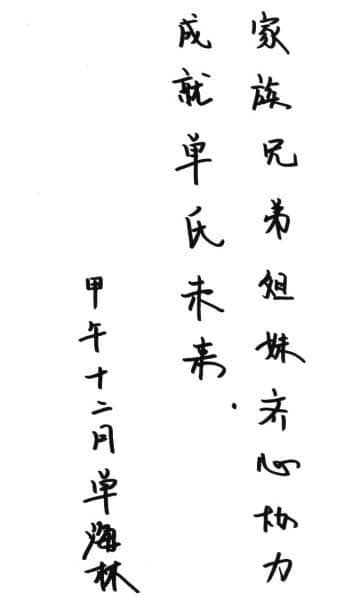 家族兄弟姐妹齐心协力
成就单氏未来.
甲午十二月单海林